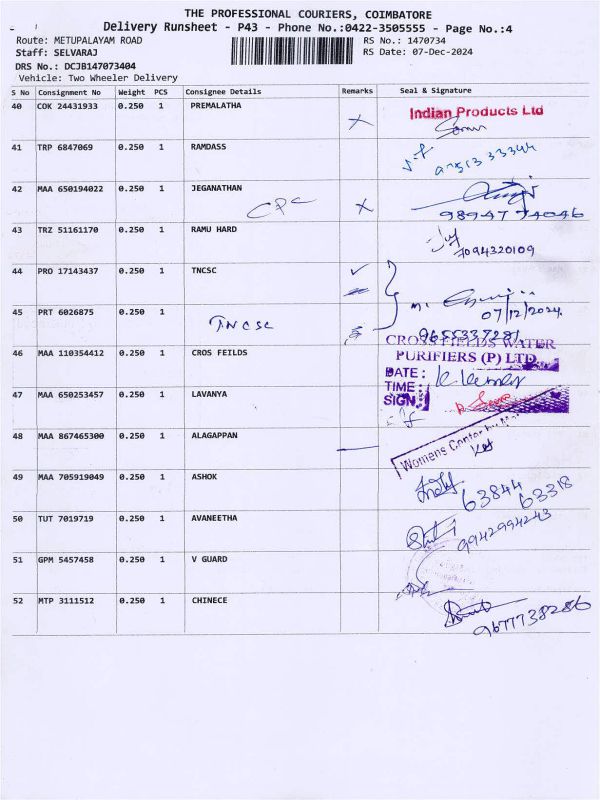 THE PROFESSIONAL COURIERS, COIMBATORE
Delivery Runsheet - P43 - Phone No.:0422-3505555 - Page No.:4
Route: METUPALAYAM ROAD RS No.: 1470734
Staff: SELVARAJ RS Date: 07-Dec-2024
DRS No.: DCJB147073404
Vehicle: Two Wheeler Delivery
S No Consignment No Weight PCS Consignee Details Remarks Seal & Signature
40 COK 24431933 0.250 1 PREMALATHA
Indian Products Ltd
41 TRP 6847069 0.250 1 RAMDASS
42 MAA 650194022 0.250 1 JEGANATHAN
CPC
98947 74046
43 TRZ 51161170 0.250 1 RAMU HARD
7094320109
44 PRO 17143437 0.250 1 TNCSC
07/12/2024
45 PRT 6026875 0.250 1
TNCSC
9655337281
46 MAA 110354412 0.250 1 CROS FEILDS
CROSS FIELDS WATER
PURIFIERS (P) LTD
DATE :
TIME :
SIGN
47 MAA 650253457 0.250 1 LAVANYA
48 MAA 867465300 0.250 1 ALAGAPPAN
Womens Center by
49 MAA 705919049 0.250 1 ASHOK
63844 63318
50 TUT 7019719 0.250 1 AVANEETHA
9942994243
51 GPM 5457458 0.250 1 V GUARD
52 MTP 3111512 0.250 1 CHINECE
9677738286